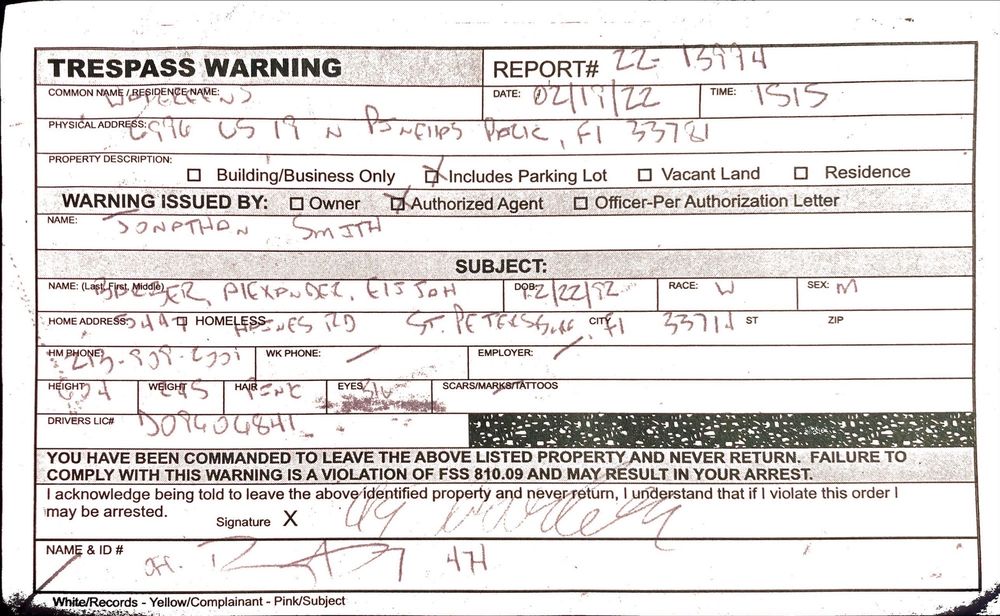 TRESPASS WARNING REPORT# 22-13974
COMMON NAME / RESIDENCE NAME: WALGREENS DATE: 02/19/22 TIME: 1515
PHYSICAL ADDRESS: US 19 N PINELLAS PARK, Fl 33781
PROPERTY DESCRIPTION:
Building/Business Only Includes Parking Lot Vacant Land Residence
WARNING ISSUED BY: Owner Authorized Agent Officer-Per Authorization Letter
NAME: JONATHAN SMITH
SUBJECT:
NAME: (Last, First, Middle) AlEXANDER, ElIJAH DOB: RACE: W SEX: M
HOME ADDRESS: HOMELESS HAINES RD ST. PETERSBURG CITY Fl 33714 ST ZIP
HM PHONE: WK PHONE: EMPLOYER:
HEIGHT WEIGHT HAIR PINK EYES SCARS/MARKS/TATTOOS
DRIVERS LIC#
YOU HAVE BEEN COMMANDED TO LEAVE THE ABOVE LISTED PROPERTY AND NEVER RETURN. FAILURE TO
COMPLY WITH THIS WARNING IS A VIOLATION OF FSS 810.09 AND MAY RESULT IN YOUR ARREST.
I acknowledge being told to leave the above identified property and never return, I understand that if I violate this order I
may be arrested.
Signature X
NAME & ID # Ofc. 474
White/Records - Yellow/Complainant - Pink/Subject